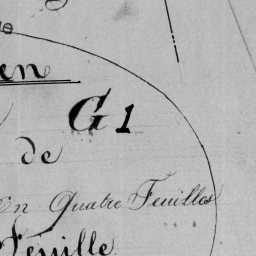 en
G1
de
en Quatre Feuilles
Feuille